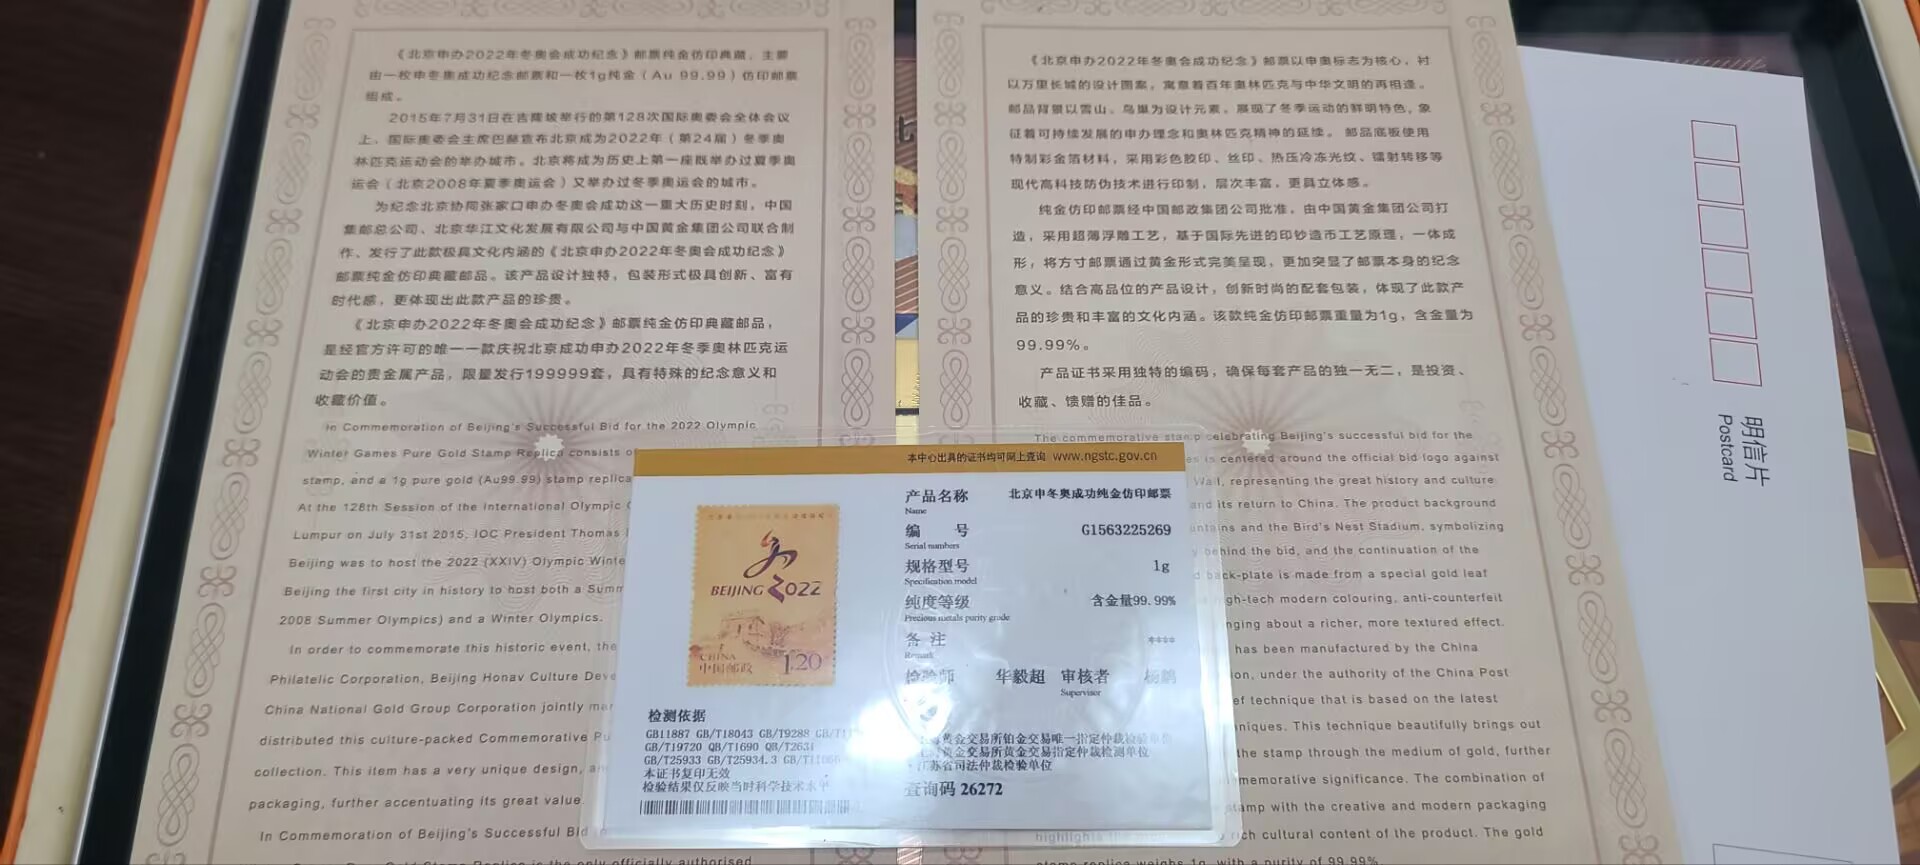 《北京申办2022年冬奥会成功纪念》邮票纯金仿印典藏，主要
由一枚申冬奥成功纪念邮票和一枚1g纯金（Au 99.99）仿印邮票
组成。
2015年7月31日在吉隆坡举行的第128次国际奥委会全体会议
上，国际奥委会主席巴赫宣布北京成为2022年（第24届）冬季奥
林匹克运动会的举办城市。北京将成为历史上第一座既举办过夏季奥
运会（北京2008年夏季奥运会）又举办过冬季奥运会的城市。
为纪念北京协同张家口申办冬奥会成功这一重大历史时刻，中国
集邮总公司、北京华江文化发展有限公司与中国黄金集团公司联合制
作、发行了此款极具文化内涵的《北京申办2022年冬奥会成功纪念》
邮票纯金仿印典藏邮品。该产品设计独特，包装形式极具创新、富有
时代感，更体现出此款产品的珍贵。
《北京申办2022年冬奥会成功纪念》邮票纯金仿印典藏邮品，
是经官方许可的唯一一款庆祝北京成功申办2022年冬季奥林匹克运
动会的贵金属产品，限量发行199999套，具有特殊的纪念意义和
收藏价值。
In Commemoration of Beijing's Successful Bid for the 2022 Olympic
Winter Games Pure Gold Stamp Replica consists of
stamp, and a 1g pure gold (Au99.99) stamp replica
At the 128th Session of the International Olympic
Lumpur on July 31st 2015, IOC President Thomas
Beijing was to host the 2022 (XXIV) Olympic Winte
Beijing the first city in history to host both a Summ
2008 Summer Olympics) and a Winter Olympics.
In order to commemorate this historic event, the
Philatelic Corporation, Beijing Honav Culture Deve
China National Gold Group Corporation jointly ma
distributed this culture-packed Commemorative Pu
collection. This item has a very unique design, a
packaging, further accentuating its great value.
In Commemoration of Beijing's Successful Bid
Gold Stamp Replica is the only officially authorised
《北京申办2022年冬奥会成功纪念》邮票以申奥标志为核心，衬
以万里长城的设计图案，寓意着百年奥林匹克与中华文明的再相逢。
邮品背景以雪山、鸟巢为设计元素。展现了冬季运动的鲜明特色，象
征着可持续发展的申办理念和奥林匹克精神的延续。 邮品底板使用
特制彩金箔材料，采用彩色胶印、丝印、热压冷冻光纹、镭射转移等
现代高科技防伪技术进行印制，层次丰富，更具立体感。
纯金仿印邮票经中国邮政集团公司批准，由中国黄金集团公司打
造，采用超薄浮雕工艺，基于国际先进的印钞造币工艺原理，一体成
形，将方寸邮票通过黄金形式完美呈现，更加突显了邮票本身的纪念
意义。结合高品位的产品设计，创新时尚的配套包装，体现了此款产
品的珍贵和丰富的文化内涵。该款纯金仿印邮票重量为1g，含金量为
99.99%。
产品证书采用独特的编码，确保每套产品的独一无二，是投资、
收藏、馈赠的佳品。
The commemorative stamp celebrating Beijing's successful bid for the
es is centered around the official bid logo against
Wall, representing the great history and culture
and its return to China. The product background
untains and the Bird's Nest Stadium, symbolizing
behind the bid, and the continuation of the
d back-plate is made from a special gold leaf
gh-tech modern colouring, anti-counterfeit
nging about a richer, more textured effect.
has been manufactured by the China
on, under the authority of the China Post
ef technique that is based on the latest
niques. This technique beautifully brings out
the stamp through the medium of gold, further
memorative significance. The combination of
stamp with the creative and modern packaging
highlights the rich cultural content of the product. The gold
stamp replica weighs 1g, with a purity of 99.99%.
本中心出具的证书均可网上查询 www.ngstc.gov.cn
产品名称 北京申冬奥成功纯金仿印邮票
Name
编 号 G1563225269
Serial numbers
规格型号 1g
Specification model
纯度等级 含金量99.99%
Precious metals purity grade
备 注 ****
Remark
检验师 华毅超 审核者
Supervisor
BEIJING 2022
CHINA
中国邮政 1.20
检测依据
GB11887 GB/T18043 GB/T9288
GB/T19720 QB/T1690 QB/T2631
GB/T25933 GB/T25934.3
本证书复印无效
检验结果仅反映当时科学技术水平
黄金交易所铂金交易唯一指定仲裁检验单位
黄金交易所黄金交易指定仲裁检测单位
江苏省司法仲裁检验单位
查询码 26272
明信片
Postcard